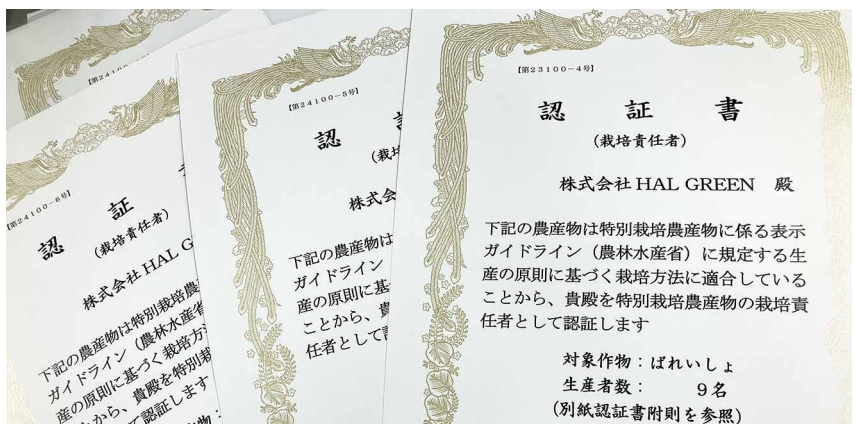 【第24100
【第24100-6号】
認 証
(栽培責任者)
株式会社 HAL G
下記の農産物は特別栽培農
ガイドライン(農林水産省
産の原則に基づく栽培方
ことから、貴殿を特別栽
て認証します
物:
【第24100-5号】
認
(栽培
株式会
下記の農産物は
ガイドライン
産の原則に基
ことから、貴
任者として
【第23100-4号】
認 証 書
(栽培責任者)
株式会社 HAL GREEN 殿
下記の農産物は特別栽培農産物に係る表示
ガイドライン(農林水産省)に規定する生
産の原則に基づく栽培方法に適合している
ことから、貴殿を特別栽培農産物の栽培責
任者として認証します
対象作物:ばれいしょ
生産者数: 9名
(別紙認証書附則を参照)